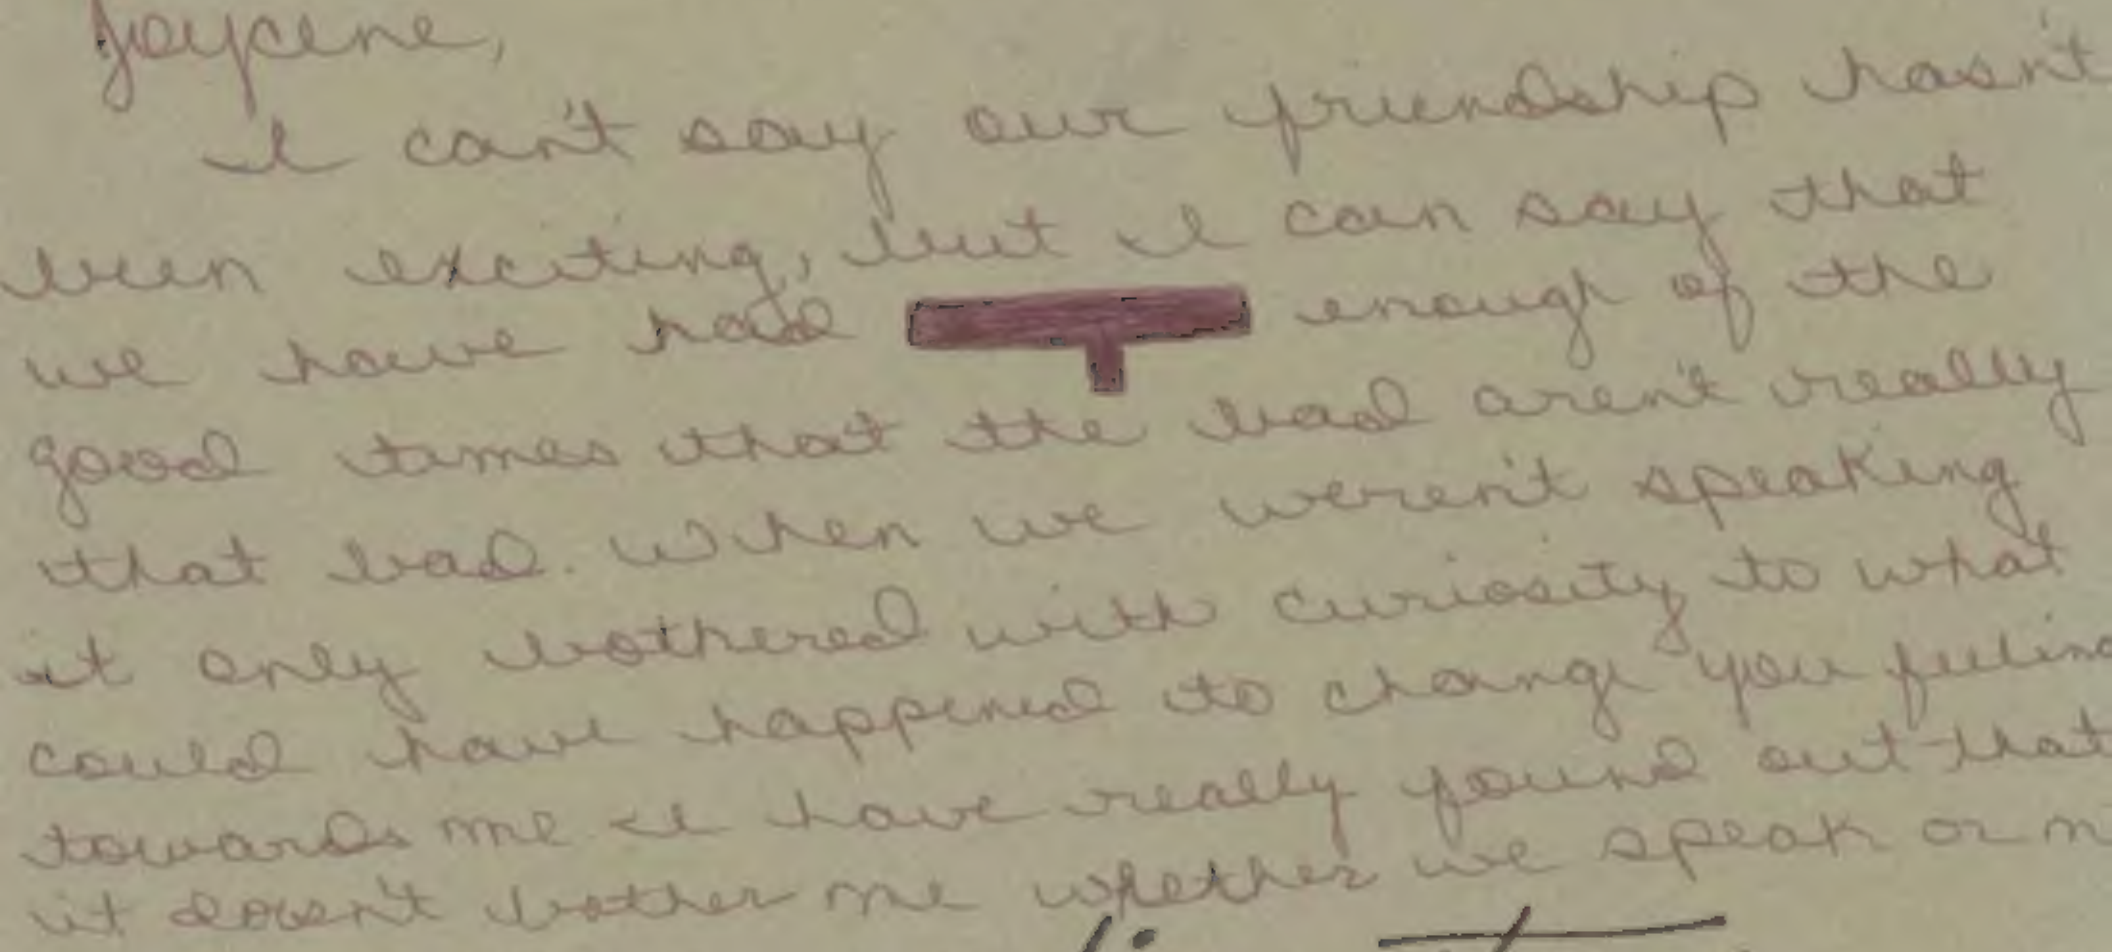 Joycene,
I can't say our friendship hasn't
been exciting, but I can say that
we have had enough of the
good times that the bad aren't really
that bad. When we weren't speaking
it only bothered with curiosity to what
could have happened to change you feeling
towards me I have really found out that
it doesn't bother me whether we speak or n